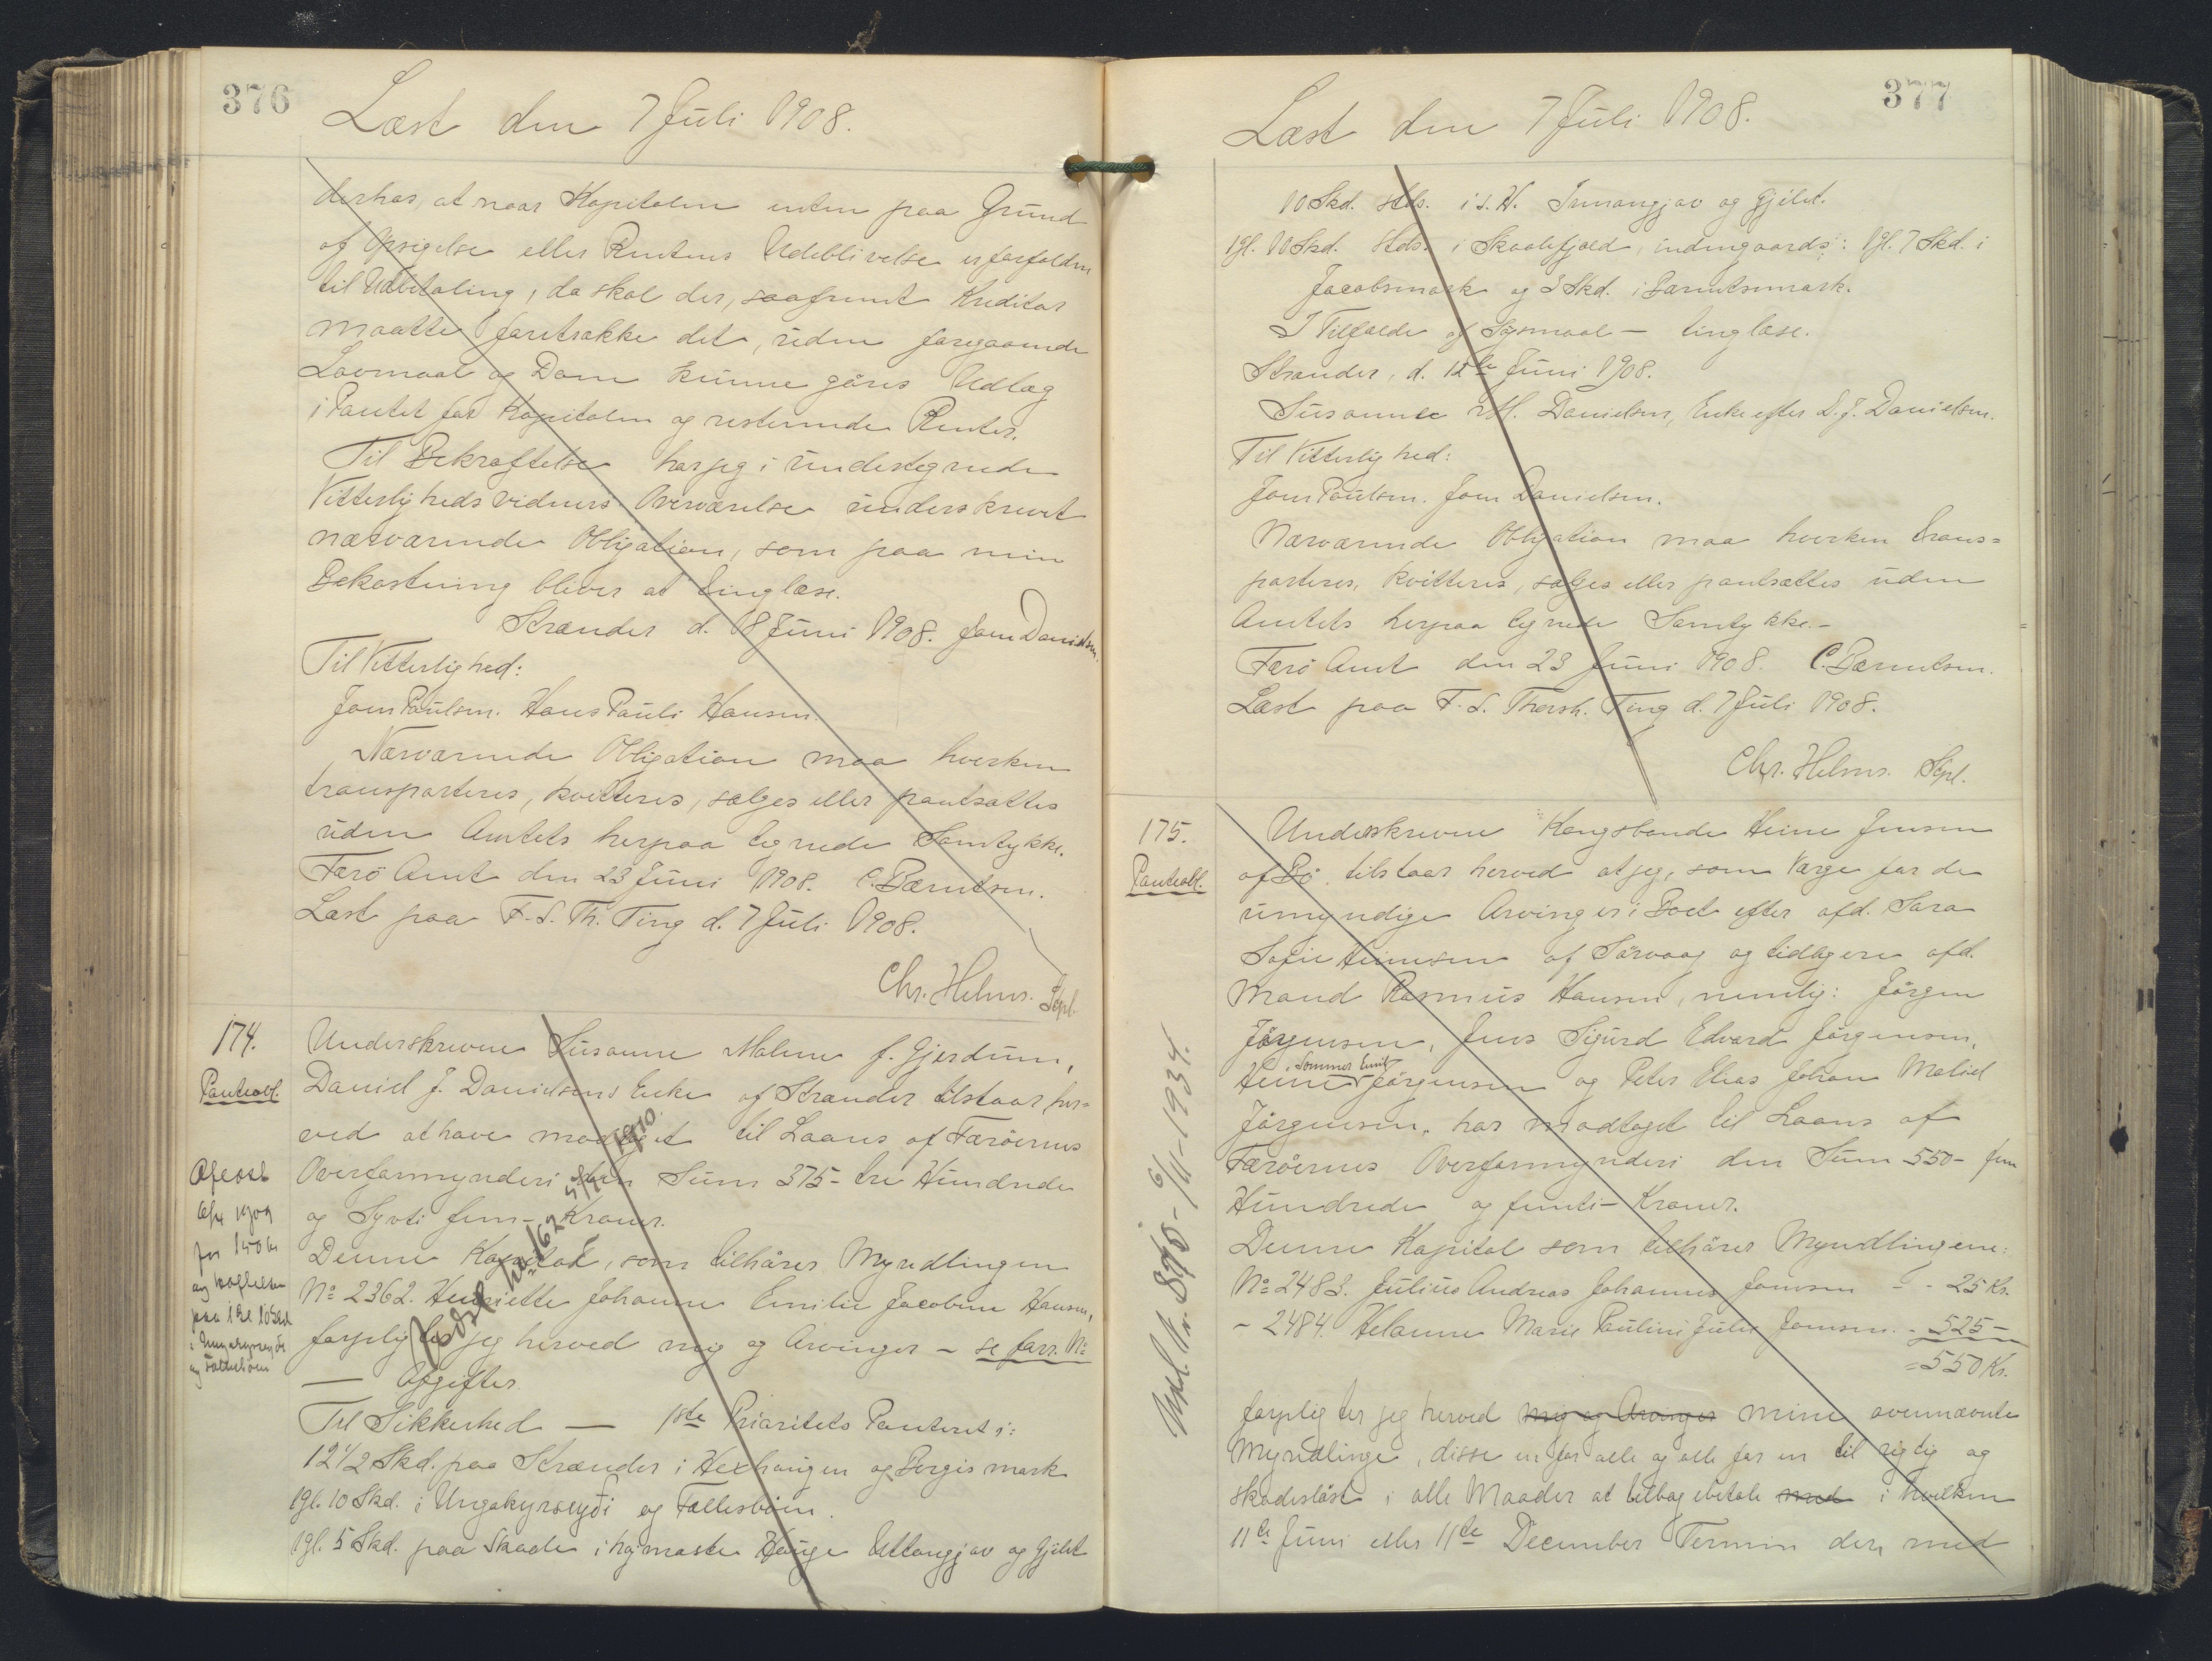 376
Læst den 7 Juli 1908.
derhos, at naar Kapitalen enten paa Grund
af Opsigelse eller Rentens Udeblivelse er forfalden
til Udbetaling, da skal der, saafremt Kreditor
maatte foretrække det, uden foregaaende
Lovmaal og Dom kunne gøres Udlæg
i Pantet for Kapitalen og resterende Renter.
Til Bekræftelse har jeg i undertegnede
Vitterlighedsvidners Overværelse underskrevet
nærværende Obligation, som paa min
Bekostning bliver at tinglæse.
Strænder d. 18 Juni 1908. Joen Danielsen.
Til Vitterlighed:
Joen Poulsen. Hans Pauli Hansen.
Nærværende Obligation maa hverken
transporteres, kvitteres, sælges eller pantsættes
uden Amtets herpaa tegnede Samtykke.
Færö Amt den 23 Juni 1908. C. Bærentsen.
Læst paa F. S. Th. Ting d. 7 Juli 1908.
Chr. Helms. Sepl.
174.
Panteobl.
Underskrevne Susanne Malene f. Gjerdum,
Daniel J. Danielsens Enke af Strænder tilstaar her=
ved at have modtaget til Laans af Færöernes
Overformynderi den Sum 375- tre Hundrede
og Syvti fem- Kroner.
Denne Kapital, som tilhører Myndlingen
No 2362. Henriette Johanne Emilie Jacobine Hansen,
forpligter jeg herved mig og Arvinger - se forr. No
— Afgifter
Til Sikkerhed — 1ste Prioritets Panteret i:
12 1/2 Skd. paa Strænder i Hexhaugen og Bergismark
1gl. 10 Skd. i Ungakyrseyði og Fællesböen.
1gl. 5 Skd. paa Skaale i hømaste Hauge Uttangjav og Gjilet
Afl.
for 150 kr
paa 1 Gl 10 Skd
377
Læst den 7 Juli 1908.
10 Skd. stds. i s. H. Innangjav og Gjilet.
1gl. 10 Skd. stds. i Skaalefjæld, indengaards: 1gl. 7 Skd. i
Jacobsmark og 3 Skd. i Barentsmark.
I Tilfælde af Søgsmaal — tinglæse.
Strænder, d. 12te Juni 1908.
Susanne M. Danielsen, Enke efter D. J. Danielsen.
Til Vitterlighed:
Joen Poulsen. Joen Danielsen.
Nærværende Obligation maa hverken trans=
porteres, kvitteres, sælges eller pantsættes uden
Amtets herpaa tegnede Samtykke.-
Færö Amt den 23 Juni 1908. C. Bærentsen.
Læst paa F. S. Thorsh. Ting d. 7 Juli 1908.
Chr. Helms. Sepl.
175.
Panteobl.
Underskrevne Kongsbonde Heine Jensen
af Bö tilstaar herved at jeg, som Værge for de
umyndige Arvinger i Boet efter afd. Sara
Sofie Heinesen af Sörvaag og tidligere afd.
Mand Rasmus Hansen, nemlig: Jørgen
Jørgensen, Jens Sigurd Edvard Jørgensen,
Sommer Emil
Heine Jørgensen og Peter Elias Johan Meliel
Jørgensen, har modtaget til Laans af
Færöernes Overformynderi den Sum 550- fem
Hundrede og femti- Kroner.
Denne Kapital som tilhører Myndlingene:
No 2483. Julius Andreas Johannes Joensen - - 25 Kr.
- 2484. Helanne Marie Pauline Julie Joensen. - 525 -
= 550 Kr.
forpligter jeg herved mig og Arvinger mine ovennævnte
Myndlinge, disse en for alle og alle for en til rigtig og
skadesløst i alle Maader at tilbagebetale med i hvilken
11te Juni eller 11te December Termin den, med
Udsl. Nr. 898- 6/11-1934.